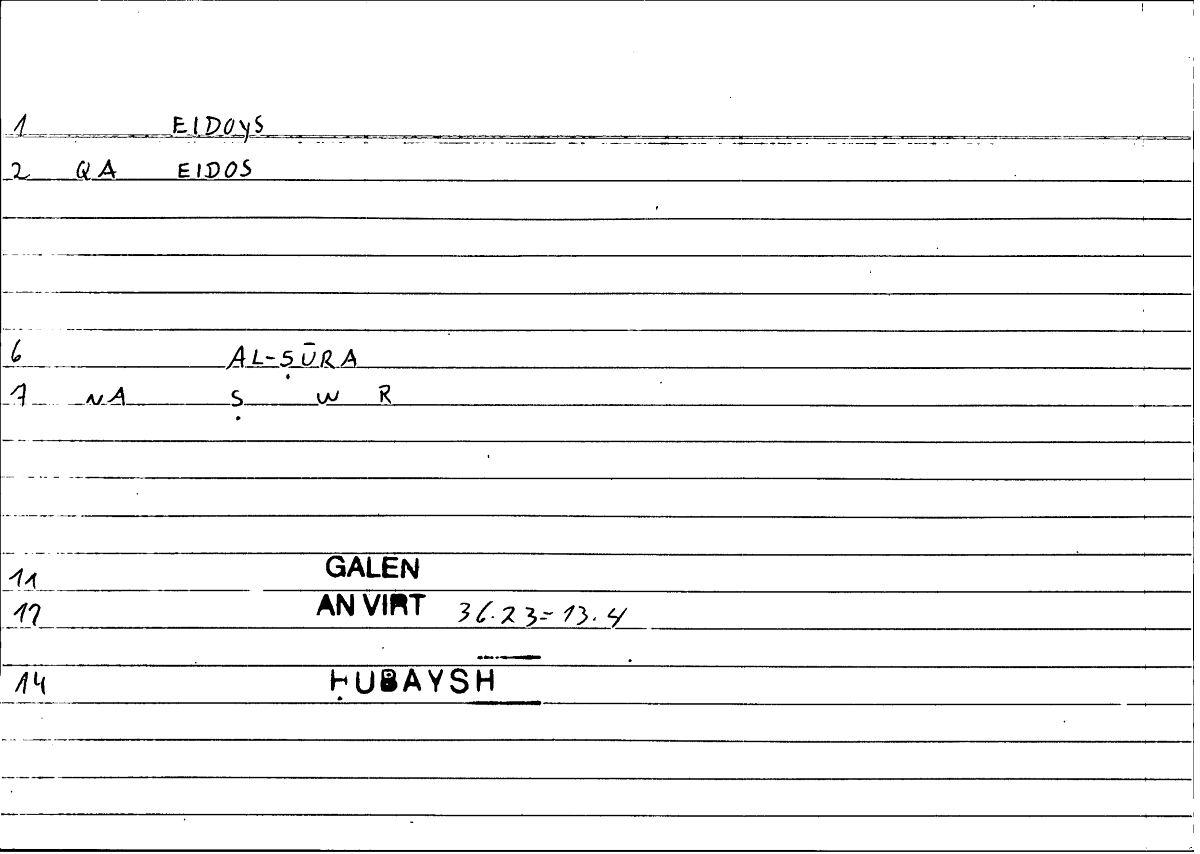 1 EIDOYS
2 QA EIDOS
6 AL-ṢŪRA
7 NA Ṣ W R
11 GALEN
12 AN VIRT 36.23=13.4
14 ḤUBAYSH